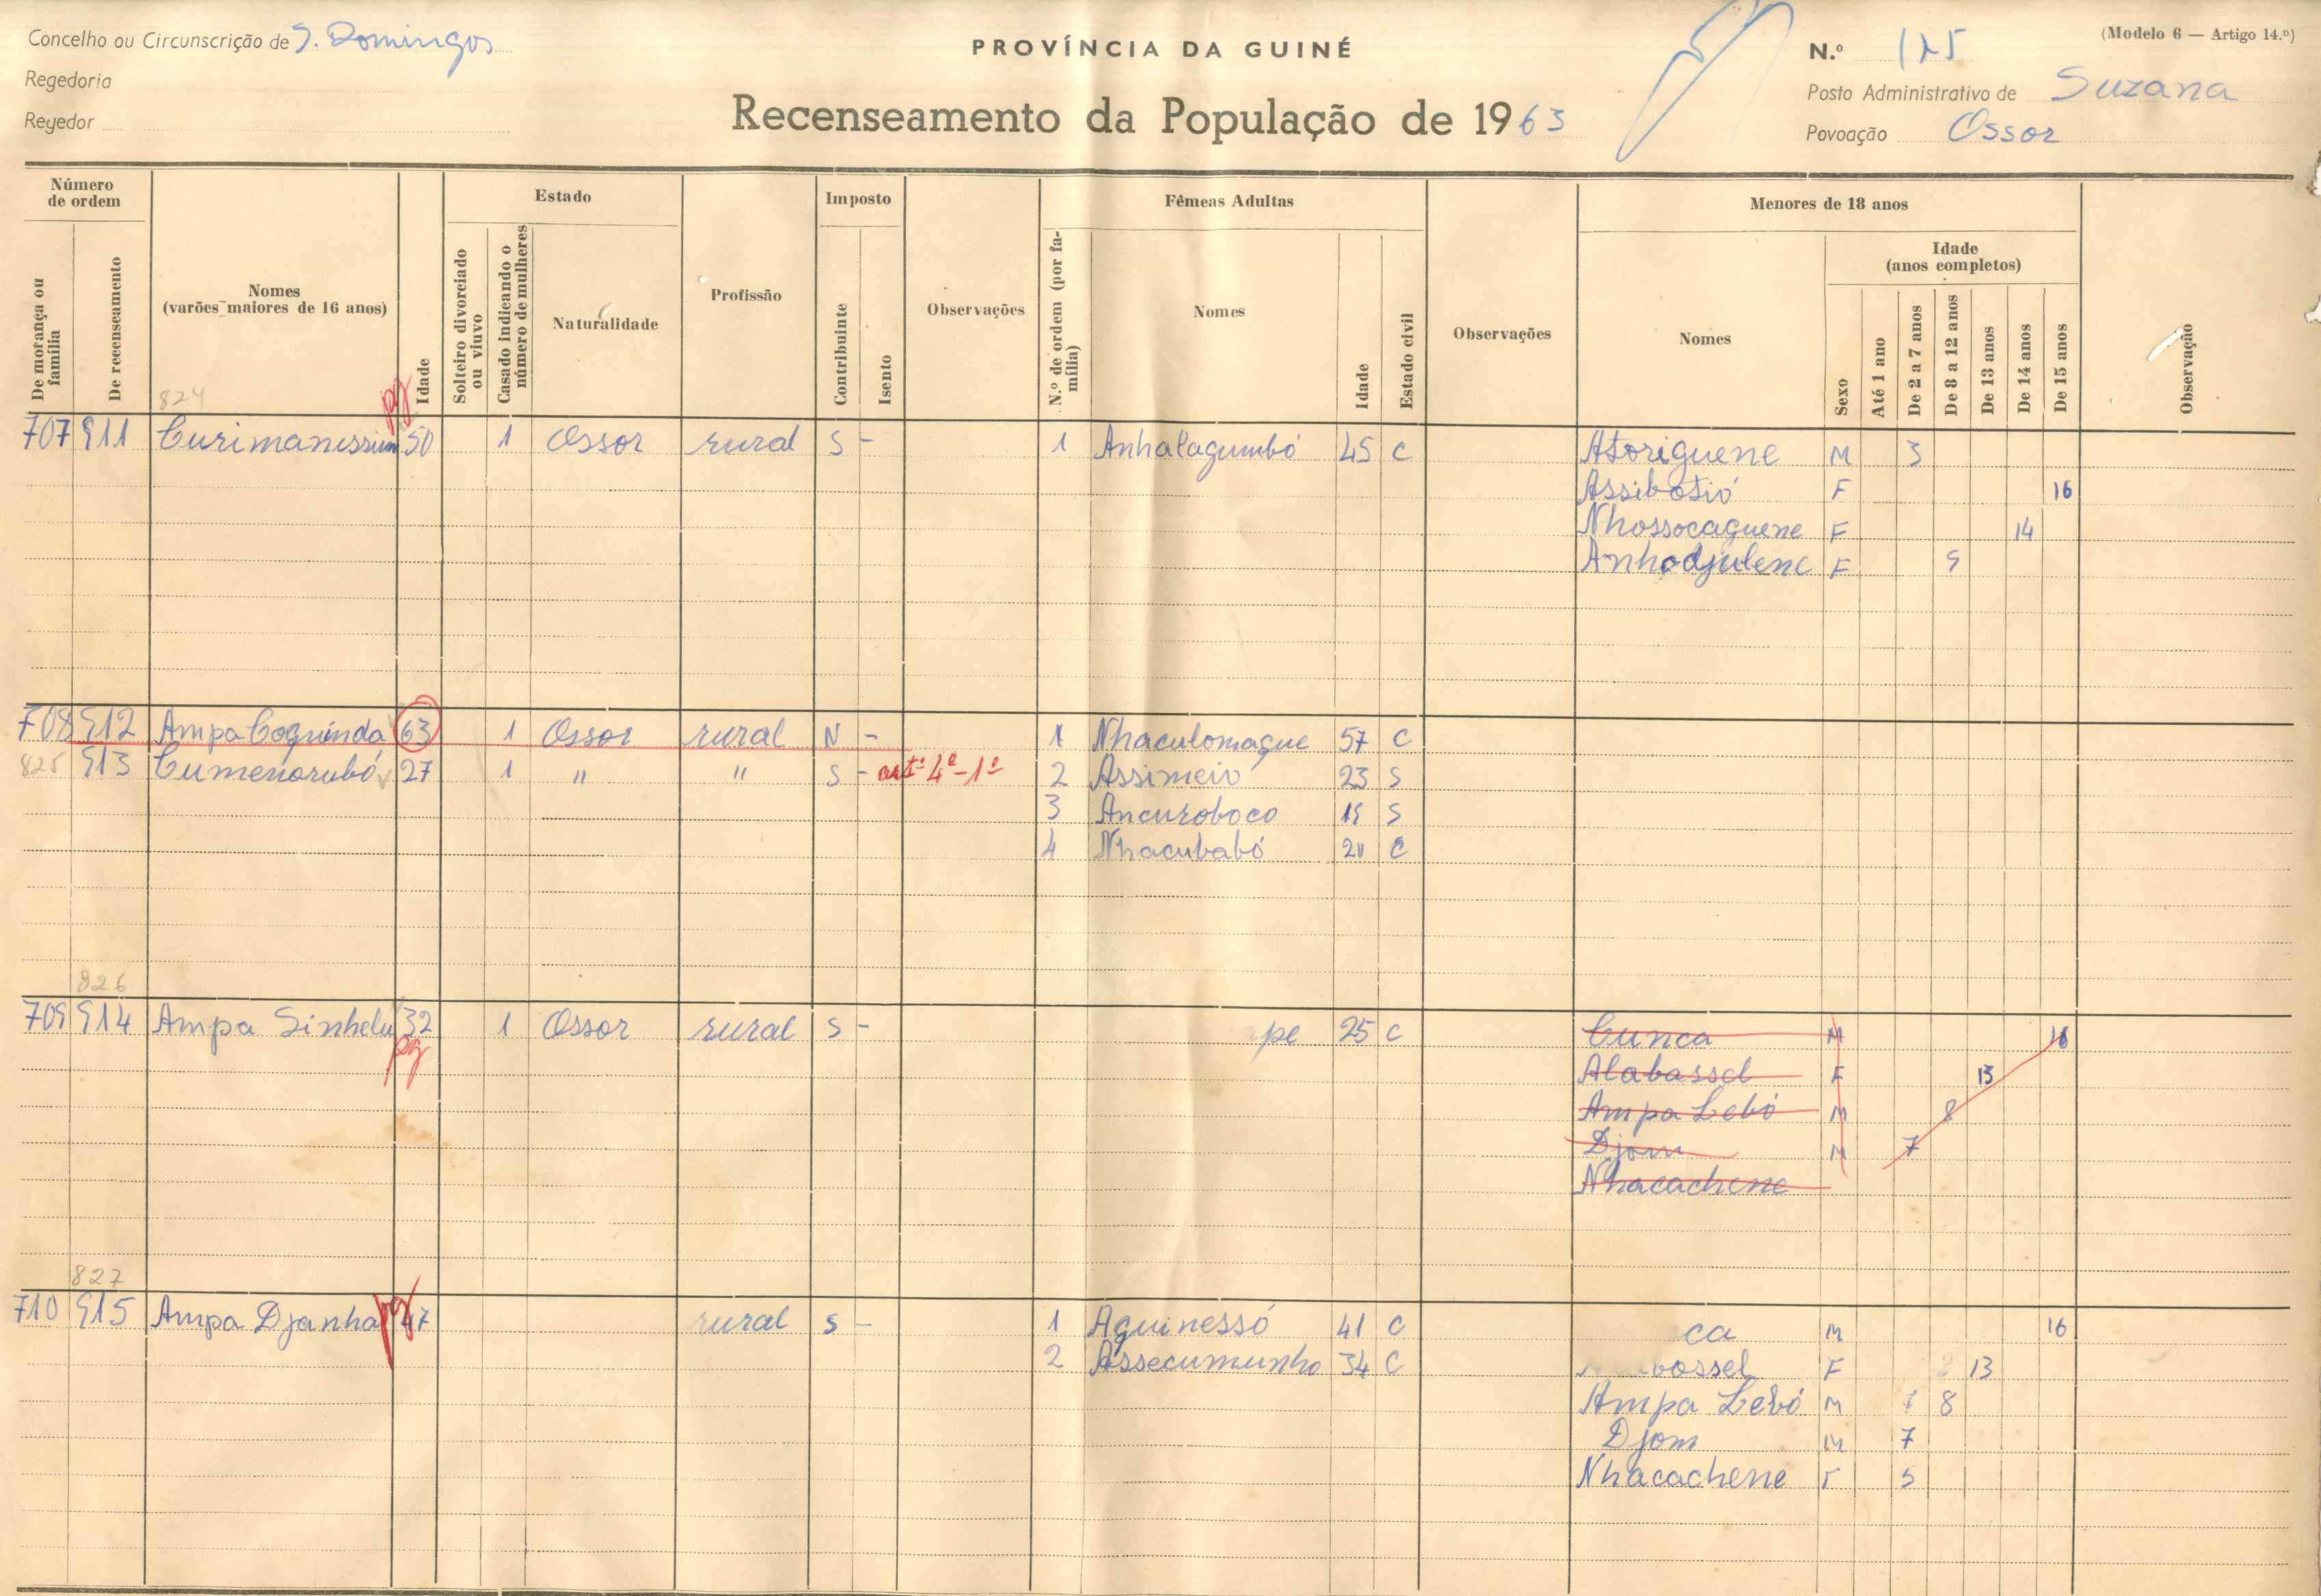 Concelho ou Circunscrição de S. Domingos
PROVÍNCIA DA GUINÉ
N.º 125
(Modelo 6 — Artigo 14.º)
Regedoria
Posto Administrativo de Suzana
Regedor
Recenseamento da População de 1963
Povoação Ossor
Número de ordem
De morança ou família
De recenseamento
Nomes (varões maiores de 16 anos)
Idade
Estado
Solteiro divorciado ou viuvo
Casado indicando o número de mulheres
Naturalidade
Profissão
Imposto
Contribuinte
Isento
Observações
Fêmeas Adultas
N.º de ordem (por família)
Nomes
Idade
Estado civil
Observações
Menores de 18 anos
Nomes
Sexo
Idade (anos completos)
Até 1 ano
De 2 a 7 anos
De 8 a 12 anos
De 13 anos
De 14 anos
De 15 anos
Observação
824
pg
707 911 50 1 Ossor rural S - 1 Anhalagumbó 45 C Atoriguene M 3
Assibotió F 16
Nhossocaguene F 14
Anhodjulene F 9
708 912 Ampa Coguinda 63 1 Ossor rural N - 1 Nhaculomague 57 C
825 913 Cumenorubó 27 1 " " S - artº 4º-1º 2 Assimeió 23 S
3 Ancuroboco 19 S
4 Nhacubabó 20 C
826
709 914 Ampa Sinhelu 32 1 Ossor rural S - pe 25 C Cunca M 16
pg
Alabassel F 13
Ampa Lebó M 8
Djom M 7
Nhacachene
827
710 915 Ampa Djanha pg 47 rural S - 1 Aguinessó 41 C ca M 16
2 Assecumunho 34 C bossel F 13
Ampa Lebó M 8
Djom M 7
Nhacachene F 5